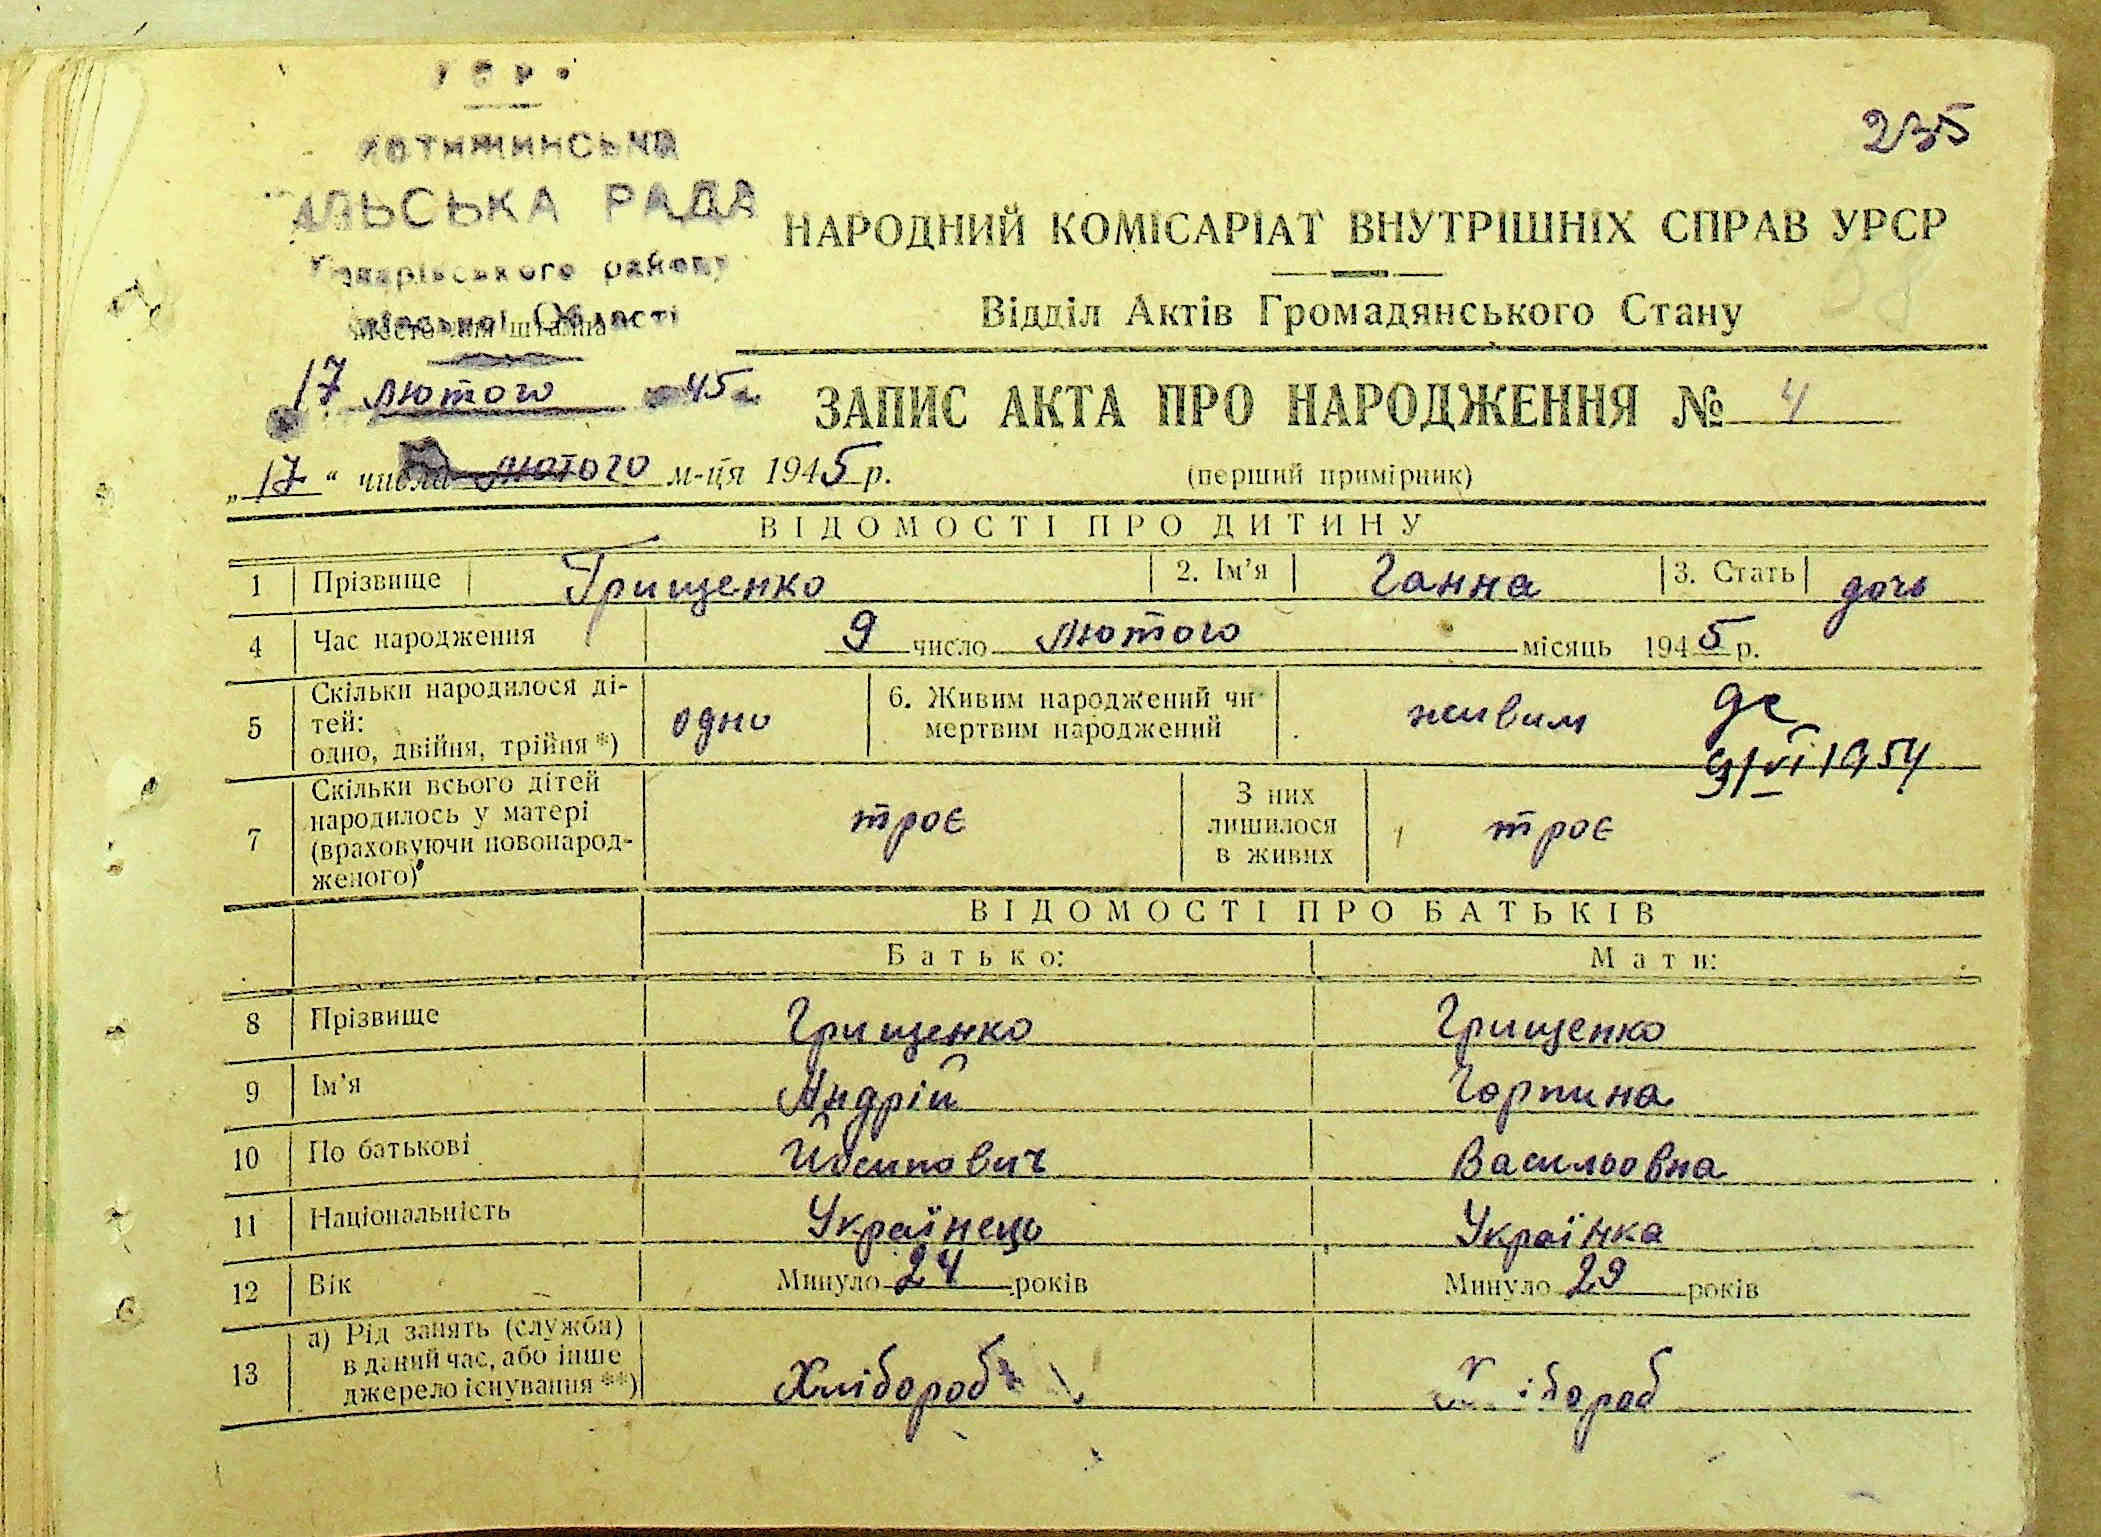 235
РАДА
району
Області
НАРОДНИЙ КОМІСАРІАТ ВНУТРІШНІХ СПРАВ УРСР
Відділ Актів Громадянського Стану
17 лютого 45
ЗАПИС АКТА ПРО НАРОДЖЕННЯ № 4
„17“ числа лютого м-ця 1945 р.
(перший примірник)
ВІДОМОСТІ ПРО ДИТИНУ
1 Прізвище Грищенко 2. Ім'я Ганна 3. Стать дочь
4 Час народження 9 число лютого місяць 1945 р.
5 Скільки народилося ді-
тей:
одно, двійня, трійня *) одно 6. Живим народжений чи
мертвим народжений живим
9/VI 1954
7 Скільки всього дітей
народилось у матері
(враховуючи новонарод-
женого) троє З них
лишилося
в живих троє
ВІДОМОСТІ ПРО БАТЬКІВ
Батько: Мати:
8 Прізвище Грищенко Грищенко
9 Ім'я Андрій Горпина
10 По батькові Йосипович Васильовна
11 Національність Українець Українка
12 Вік Минуло 24 років Минуло 29 років
13 а) Рід занять (служби)
в даний час, або інше
джерело існування **) Хлібороб Хлібороб